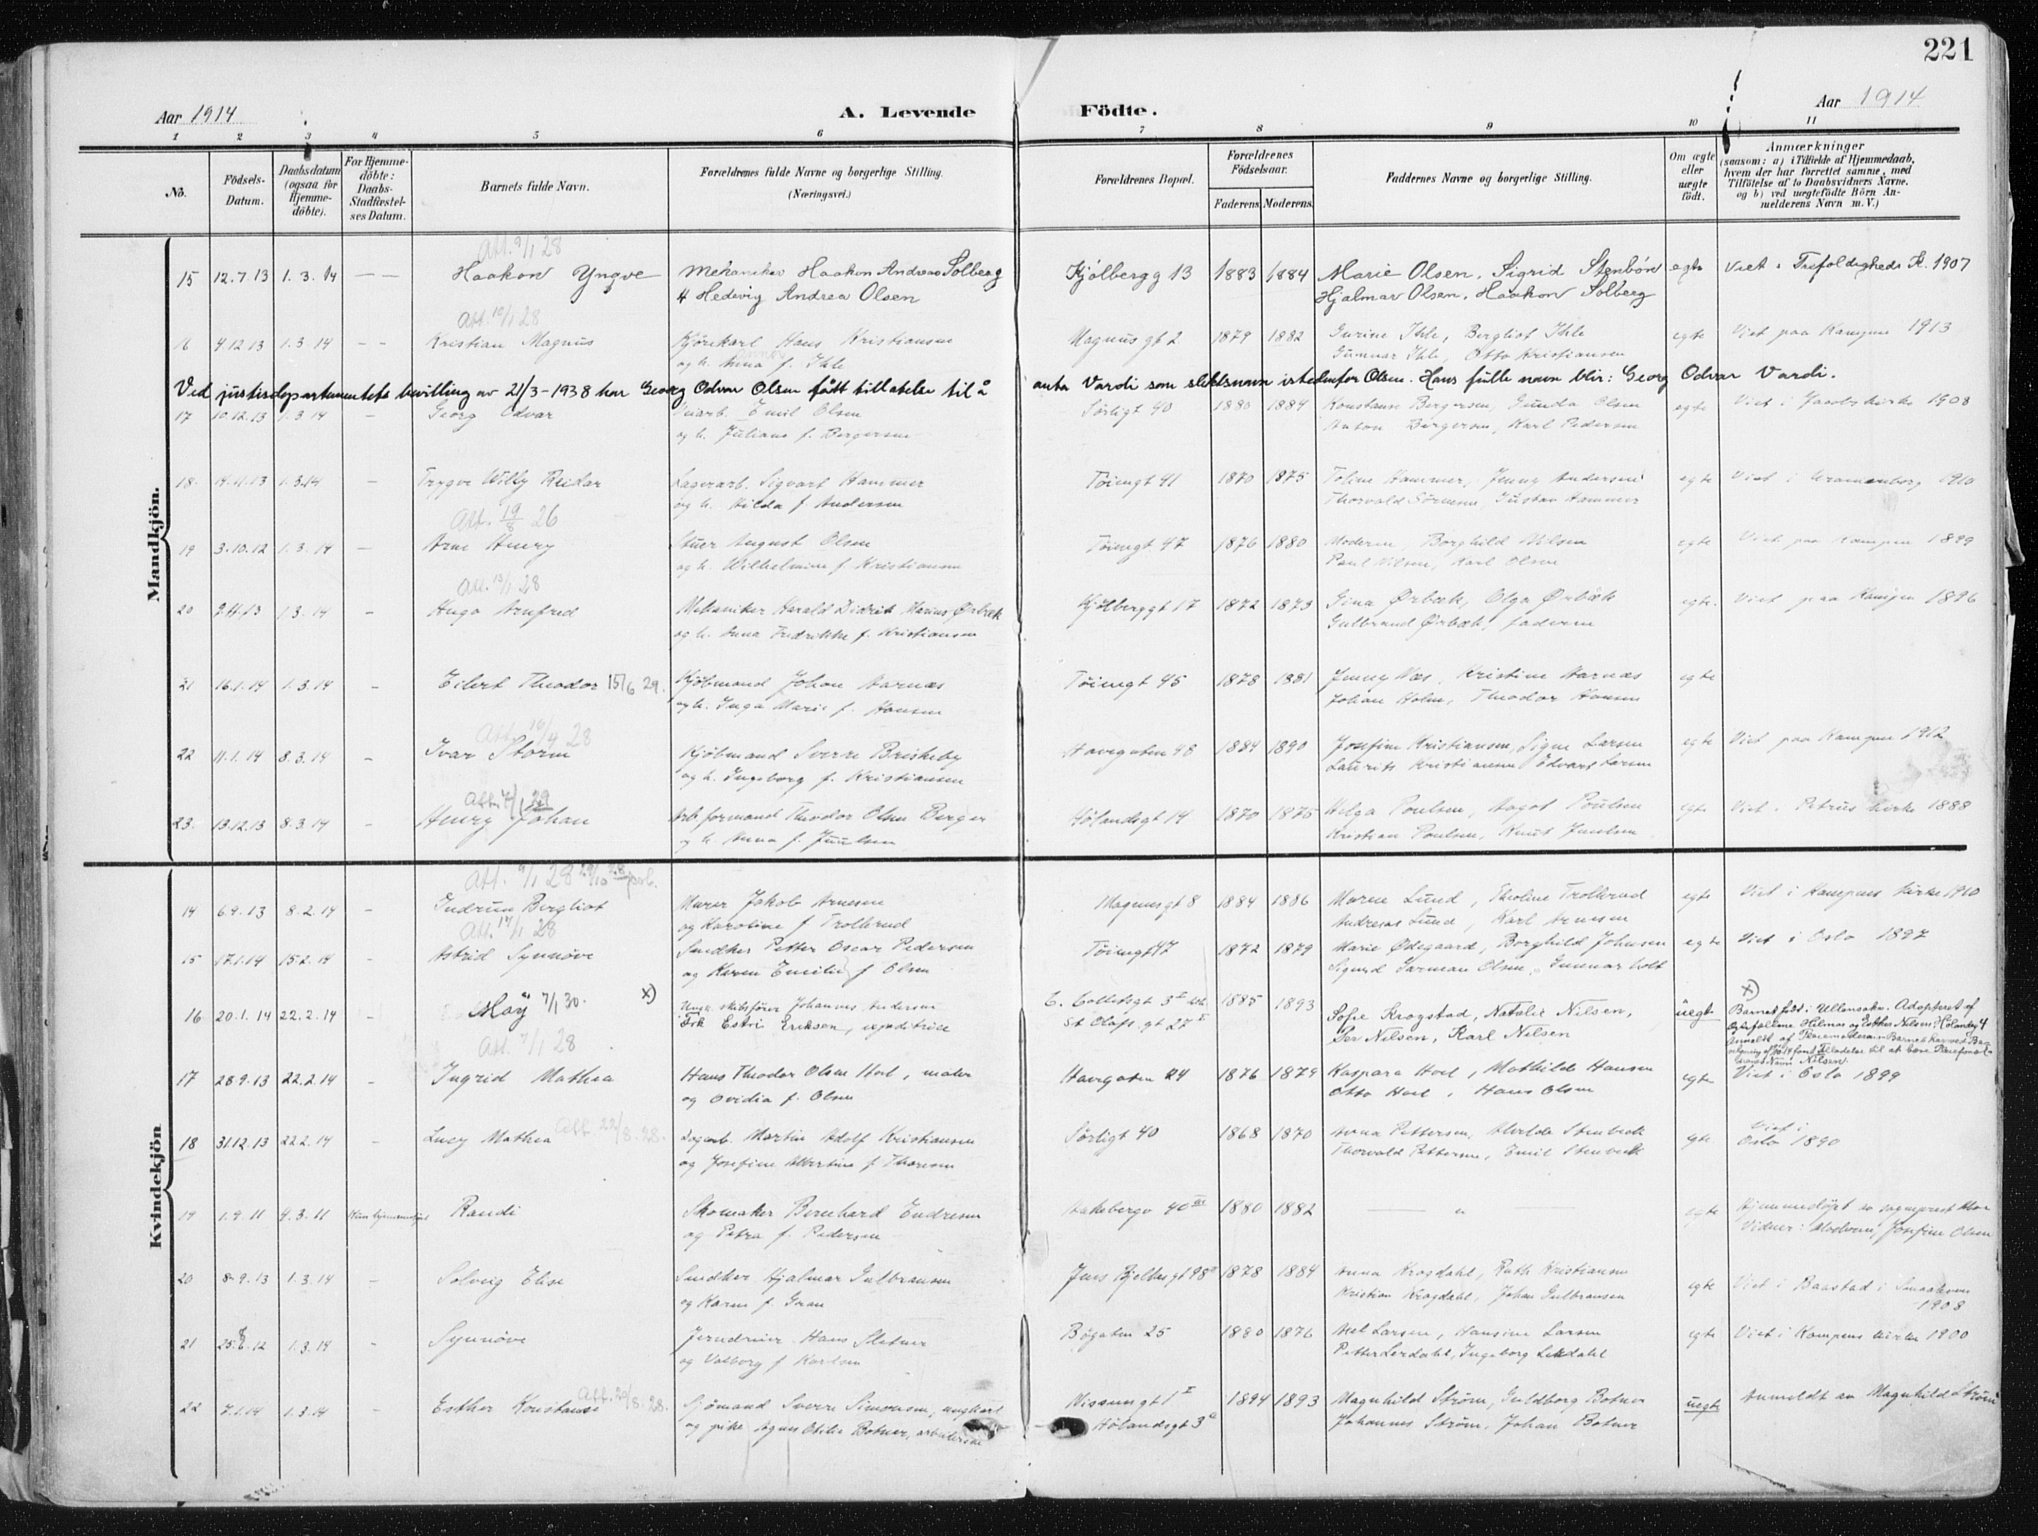 221
Aar 1914
A. Levende Födte.
Aar 1914
1 2 3 4 5 6 7 8 9 10 11
No.
Födsels-Datum.
Daabsdatum (ogsaa for Hjemme-döbte).
For Hjemme-döbte: Daabs-Stadfæstel-ses Datum.
Barnets fulde Navn.
Forældrenes fulde Navne og borgerlige Stilling.
(Næringsvei.)
Forældrenes Bopæl.
Forældrenes Födselsaar.
Faderens. Moderens.
Faddernes Navne og borgerlige Stilling.
Om ægte eller uægte födt.
Anmærkninger
(saasom: a) i Tilfælde af Hjemmedaab,
hvem der har forrettet samme, med
Tilföielse af to Daabsvidners Navne.
og b) ved uægtefödte Börn An-
melderens Navn m. V.)
Mandkjön.
Att. 9/1 28
15 12.7.13 1.3.14 — — Haakon Yngve Mekaniker Haakon Andreas Solberg Kjölbergg 13 1883 1884 Marie Olsen, Sigrid Stenbön egte Viet i Trefoldigheds K. 1907
& Hedevig Andrea Olsen Hjalmar Olsen, Haakon Solberg
Att. 10/1 28
16 4.12.13 1.3.14 — — Kristian Magnus Kjörekarl Hans Kristiansen Magnus gt 2 1879 1882 Gurine Ihle, Bergliot Ihle egte Viet paa Kampen 1913
og h. Anna f. Ihle Gunnar Ihle, Otto Kristiansen
Ved justisdepartementets bevilling av 21/3-1938 har Georg Odvar Olsen fått tillatelse til å anta Vardi som slektsnavn istedenfor Olsen. Hans fulle navn blir: Georg Odvar Vardi.
17 10.12.13 1.3.14 — Georg Odvar Emil Olsen Sörligt 40 1880 1884 Konstanse Bergersen, Gunda Olsen egte Viet i Jacobs kirke 1908
og h. Juliane f. Bergersen Anton Bergersen, Karl Pedersen
18. 14.11.13 1.3.14 — Trygve Willy Reidar Lagerarb. Sigvart Hammer Töiengt 41 1870 1875 Toline Hammer, Jenny Andersen egte Viet i Uranienborg 1910
og h. Hilda f. Andersen Thorvald Sörensen Gustav Hammer
Att. 19/8 26
19 3.10.12 1.3.14 — Arne Henry August Olsen Töiengt 47 1876 1880 Moderen Borghild Nilsen egte Viet paa Kampen 1899
og h. Wilhelmine f. Kristiansen Paul Nilsen, Karl Olsen
Att. 13/1 28
20 1.3.14 — Hugo Arnfred Mekaniker Harald Didrik Marius Ørbæk Kjölberggt 17 1872 1873 Gina Ørbæk, Olga Ørbæk egte. Viet paa Kampen 1896
og h. Anna Fredrikke f. Kristiansen Gulbrand Ørbæk, faderen
21 16.1.14 1.3.14 — Eilert Theodor 15/6 29. Kjöbmand Johan Aarnæs Töiengt 45 1878 1881 Jenny Næs, Kristine Aarnæs egte
og h. Inga Marie f. Hansen Johan Holm, Theodor Hansen
Att. 16/4 28
22 11.1.14 8.3.14 — Ivar Storm Kjöbmand Sverre Briskeby Havegaten 48 1884 1890 Josefine Kristiansen, Signe Larsen egte Viet paa Kampen 1912
og h. Ingeborg f. Kristiansen Laurits Kristiansen Edvart Larsen
Att. 7/1 29
23. 13.12.13 8.3.14 — Henry Johan Arb.formand Theodor Olsen Berger Hölandsgt 14 1870 1875 Helga Poulsen, Aagot Poulsen egte Viet i Petrus kirke 1888
og h. Anna f. Juulsen Kristian Poulsen, Knut Juulsen
Kvindekjön
Att. 9/1 28
14 6.9.13 8.2.14 — Gudrun Bergliot Murer Jakob Arnesen Magnusgt 8 1884 1886 Marne Lund, Tholine Trollerud egte Viet i Kampens kirke 1910
og Karoline f. Trollerud Andreas Lund, Karl Arnesen
Att. 17/1 28
15 17.1.14 15.2.14 — Astrid Synnöve Snedker Petter Oscar Pedersen Töiengt 47 1872 1879 Marie Ødegaard, Borghild Johnsen egte Viet i Oslo 1897
og Karen Emilie f. Olsen Sigurd Sarman Olsen, Gunnar Holt
16 20.1.14 22.2.14 Maÿ 7/1 30. x) Johannes Andersen C. Colletsgt 3 1885 1893 Sofie Krogstad, Natalie Nilsen, uegt
Frk Estri Eriksen, expeditrice St Olafs gt 27 Per Nilsen, Karl Nilsen
x) Barnet föd i Ullensaker. Adopteret af
Egtefællene Hilmar og Esther Nilsen,
Anmeldt af Pleiemoderen. Barnet har ved
Navn Nilsen.
Att. 7/1 28
17 28.9.13 22.2.14 — Ingrid Mathea Hans Theodor Olsen Hoel, maler Havegaten 24 1876 1879 Kaspara Hoel, Mathilde Hansen egte Viet i Oslo 1899
og Ovidia f. Olsen Otto Hoel, Hans Olsen
18 31.12.13 22.2.14 — Lucy Mathea Att 22/8.28. Lagerb. Martin Adolf Kristiansen Sörligt 40 1868 1870 Anna Pettersen, Alvilde Stenbeck egte Viet i Oslo 1890
og Josefine Albertine f. Thoresen Thorvald Pettersen, Emil Stenbeck
19 1.9.11 4.3.11 Randi Skomaker Bernhard Endresen Aakebergv 40 III 1880 1882 — " — egte Hjemmedöpt av sogneprest
og Petra f. Pedersen Vidner: Moderen, Josefine Olsen
20 8.9.13 1.3.14 — Solveig Else Snedker Hjalmar Gulbransen Jens Bjelkesgt 98 1878 1884 Anna Krogdahl, Ruth Kristiansen egte Viet i Baastad i Smaalenene
og Karen f. Gran Kristian Krogdahl, Johan Gulbransen 1908
21 25.8.12 1.3.14 — Synnöve Jerndreier Hans Sletner Bögaten 25 1880 1876 Larsen, Hansine Larsen egte Viet i Kampens kirke 1900
og Valborg f. Karlsen Petter Lerdahl, Ingeborg Lerdahl
22 7.1.14 1.3.14 — Esther Konstanse Att. 29/8.28. Sjömand Sverre Simonsen, ungkarl Nissensgt 1 I 1894 1893 Magnhild Ström, Guldborg Botner uegte Anmeldt av Magnhild Ström
og pike Agnes Otilie Botner, arbeiderske Hölandsgt 3 Johannes Ström, Johan Botner